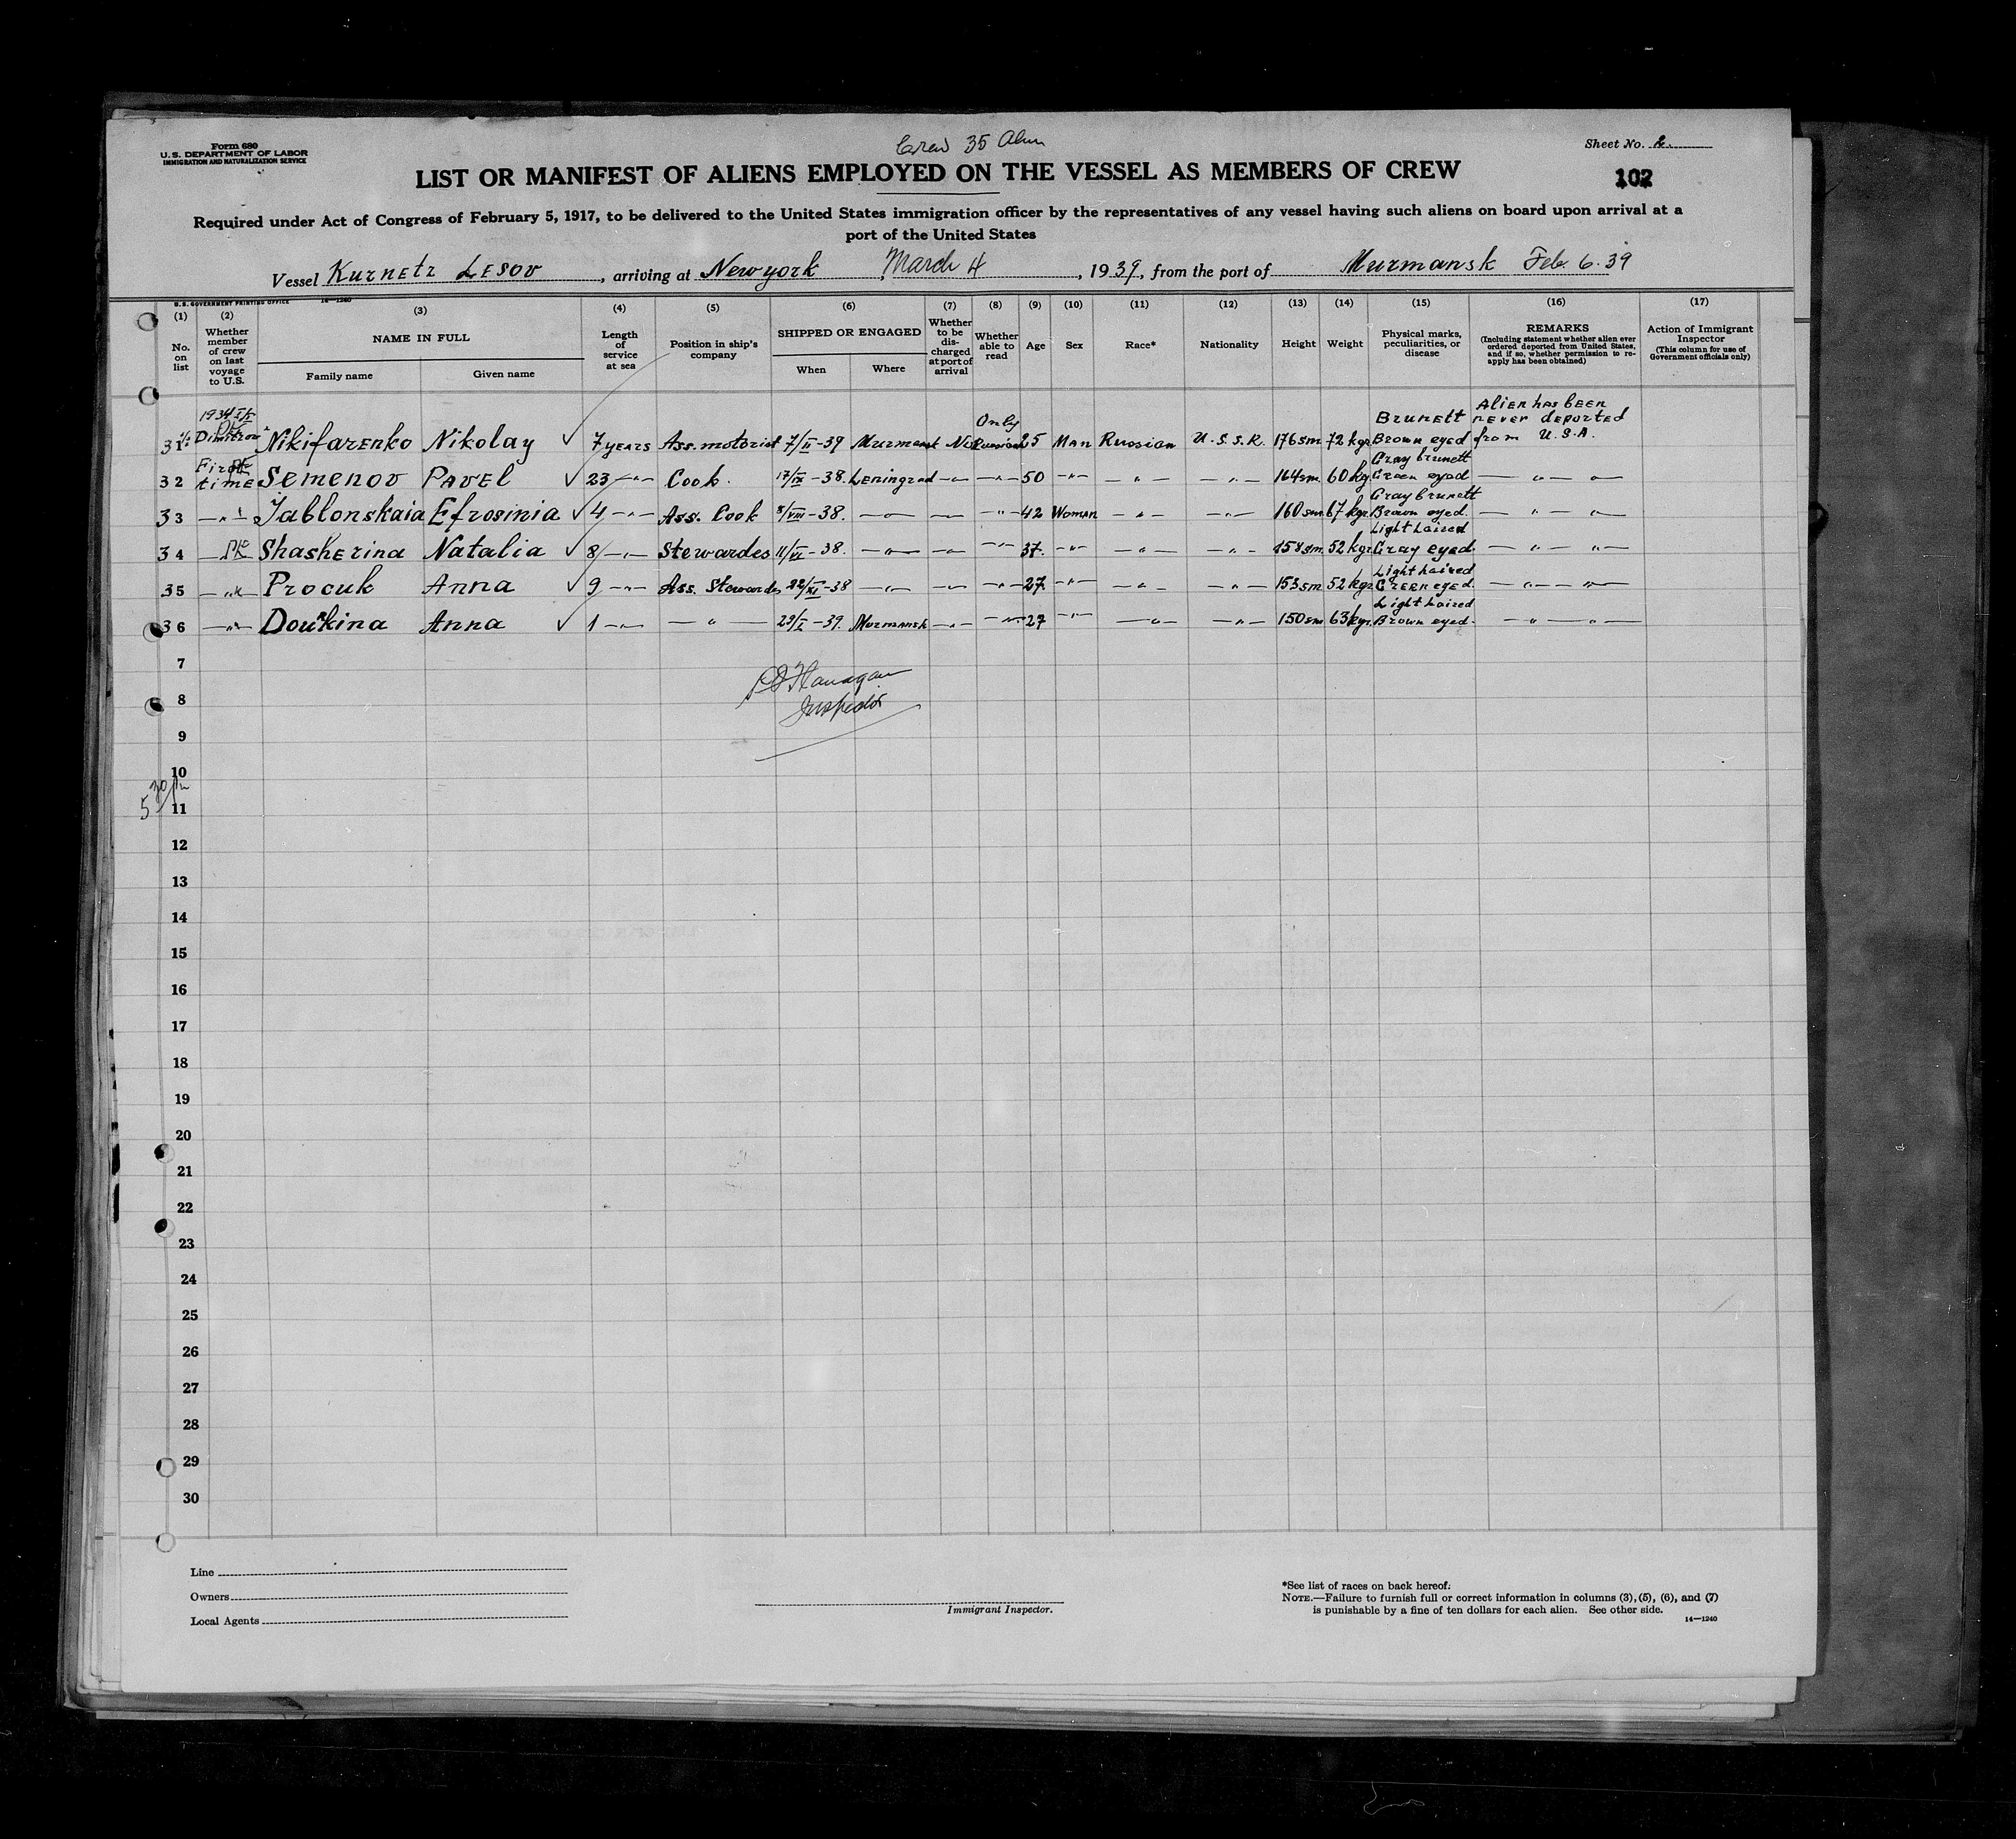 Form 680
U. S. DEPARTMENT OF LABOR
IMMIGRATION AND NATURALIZATION SERVICE
Crew 35
Sheet No.
LIST OR MANIFEST OF ALIENS EMPLOYED ON THE VESSEL AS MEMBERS OF CREW
102
Required under Act of Congress of February 5, 1917, to be delivered to the United States immigration officer by the representatives of any vessel having such aliens on board upon arrival at a
port of the United States
Vessel Kuznetz Lesov, arriving at New york, March 4, 1939, from the port of Murmansk Feb. 6. 39
U. S. GOVERNMENT PRINTING OFFICE 14—1240
(1) No. on list
(2) Whether member of crew on last voyage to U.S.
(3) NAME IN FULL Family name Given name
(4) Length of service at sea
(5) Position in ship's company
(6) SHIPPED OR ENGAGED When Where
(7) Whether to be discharged at port of arrival
(8) Whether able to read
(9) Age
(10) Sex
(11) Race*
(12) Nationality
(13) Height
(14) Weight
(15) Physical marks, peculiarities, or disease
(16) REMARKS (Including statement whether alien ever ordered deported from United States, and if so, whether permission to reapply has been obtained)
(17) Action of Immigrant Inspector (This column for use of Government officials only)
31 1934 Dimitrov Nikifarenko Nikolay ✓ 7 years Ass. motorist 7/II-39 Murmansk No Only Russian 25 Man Russian U.S.S.R. 176 sm 72 kgr Brunett Brown eyed Alien has been never deported from U.S.A.
32 First time Semenov Pavel ✓ 23 —"— Cook. 17/IX-38. Leningrad —"— —"— 50 —"— —"— —"— 164 sm. 60 kg. Gray brunett Green eyed —"—"—
33 —"— Jablonskaia Efrosinia ✓ 4 —"— Ass. Cook 8/VIII-38. —"— —"— —"— 42 Woman —"— —"— 160 sm. 67 kgr. Gray brunett Brown eyed. —"—"—
34 Shasherina Natalia ✓ 8 —"— Stewardes 11/VI-38. —"— —"— —"— 37. —"— —"— —"— 158 sm. 52 kgr. Light haired Gray eyed. —"—"—
35 —"— Procuk Anna ✓ 9 —"— Ass. Stewardes 22/XI-38 —"— —"— —"— 27 —"— —"— —"— 153 sm. 52 kgr. Light haired Green eyed. —"—"—
36 —"— Dourkina Anna ✓ 1 —"— —"— 29/I-39. Murmansk —"— —"— 27 —"— —"— —"— 150 sm 63 kgr. Light haired Brown eyed. —"—"—
7
Flanagan
8
Inspector
9
10
5 30
11
12
13
14
15
16
17
18
19
20
21
22
23
24
25
26
27
28
29
30
Line
Owners
Local Agents
Immigrant Inspector.
*See list of races on back hereof.
NOTE.—Failure to furnish full or correct information in columns (3), (5), (6), and (7)
is punishable by a fine of ten dollars for each alien. See other side.
14—1240